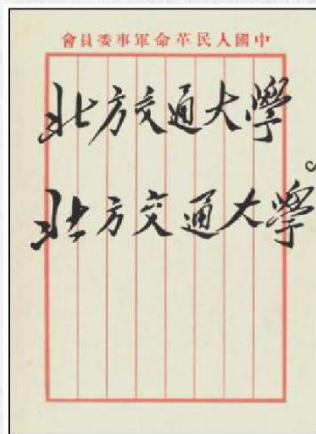 中國人民革命軍事委員會
北方交通大學
北方交通大學